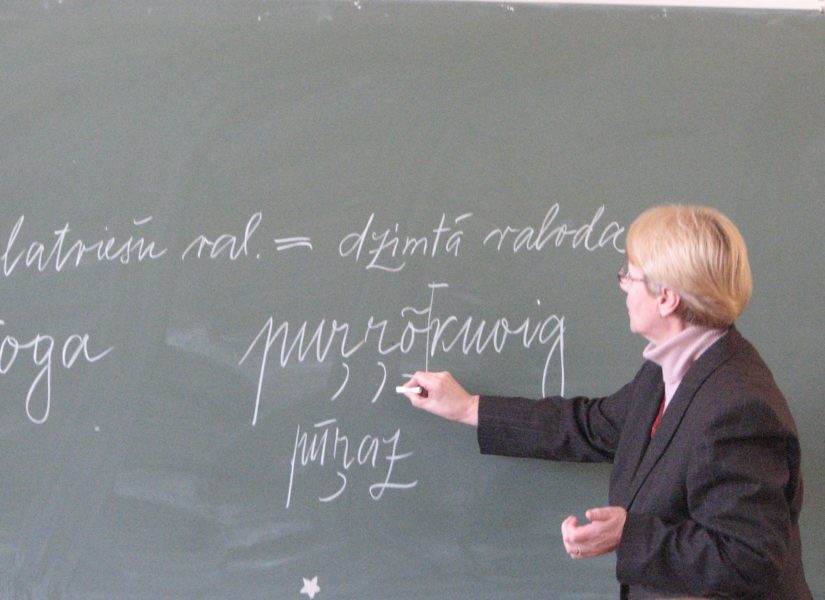 latviešu val. = dzimtā valoda
oga puŗŗõ|kuoig
pūŗaz